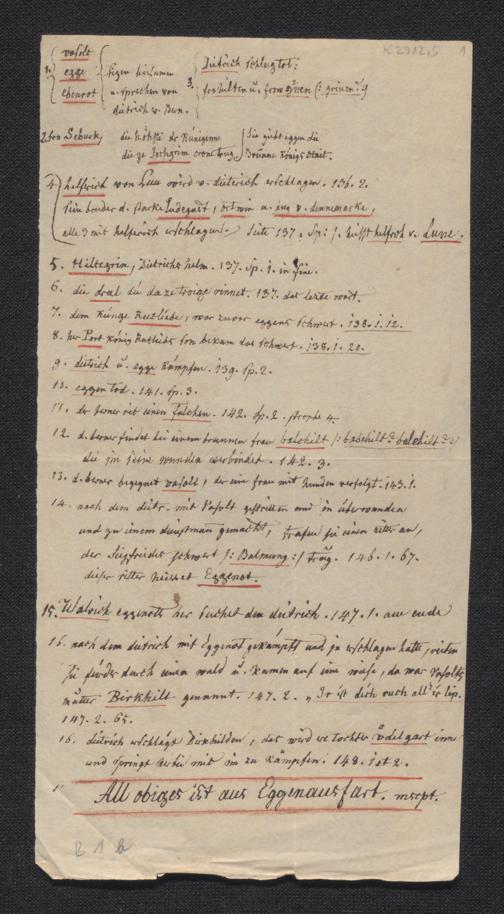 K2912,5 1
1. vasolt
egge
ebenrot
sizen beisamen
u. sprechen von
dietrich v. Bern.
3. Dietrich schlug tot:
her hilten u. frow grinen (: grinen :)
2. frou Seburk, die höhste der küniginne
die ze Jochgrim crone trug
Sie gibt eggen die
Brünne königs Otnit.
4. helferich von Lun wird v. dieterich erschlagen. 136. 2.
sein bruder d. starke ludegast, ortwin u. hug v. dennemarke,
alle 3 mit helferich erschlagen. Seite 137. Sp: 1. heisst helfrich v. Lune.
5. Hiltegrin, Dietrichs helm. 137. Sp. 1. in fine.
6. die dral die da ze troige rinnet. 137. das lezte wort.
7. dem künge Rutliebe, war zuvor eggens Schwert. 138. 1. 12.
8. her Port könig Rutliebs son bekam das Schwert. 138. 1. 20.
9. dietrich u. egge kämpfen. 139. Sp. 2.
10. eggen tod. 141. Sp. 3.
11. der berner reit einen falchen. 142. Sp. 2. strophe 4.
12. d. berner findet bei einem brunnen frau babehilt /: babehilt
die im seine wunden verbindet. 142. 3.
13. d. berner begegnet vasolt, der eine frau mit hunden verfolgt. 143. 1.
14. nach dem dietr. mit Vasolt gestritten und in überwunden
und zu einem dienstmann gemacht, trafen sie einen ritter an,
der Siegfrieds schwert /: Balmung :/ trug. 146. 1. 67.
dieser ritter heisset Eggenot.
15. Walrich eggenots her suchet den dietrich. 147. 1. am ende
16. nach dem dietrich mit Eggenot gekämpft und in erschlagen hatte, reiten
sie fürder durch einen wald u. kamen auf eine wiese, da war Vasolts
mutter Birkhilt genannt. 147. 2.
147. 2. 65.
16. dietrich erschlägt Birkhilden, das wird ire tochter Ödelgart inne
und springt herbei mit im zu kämpfen. 148. 1 et 2.
All obiges ist aus Eggenausfart. mscpt.
B 1 b